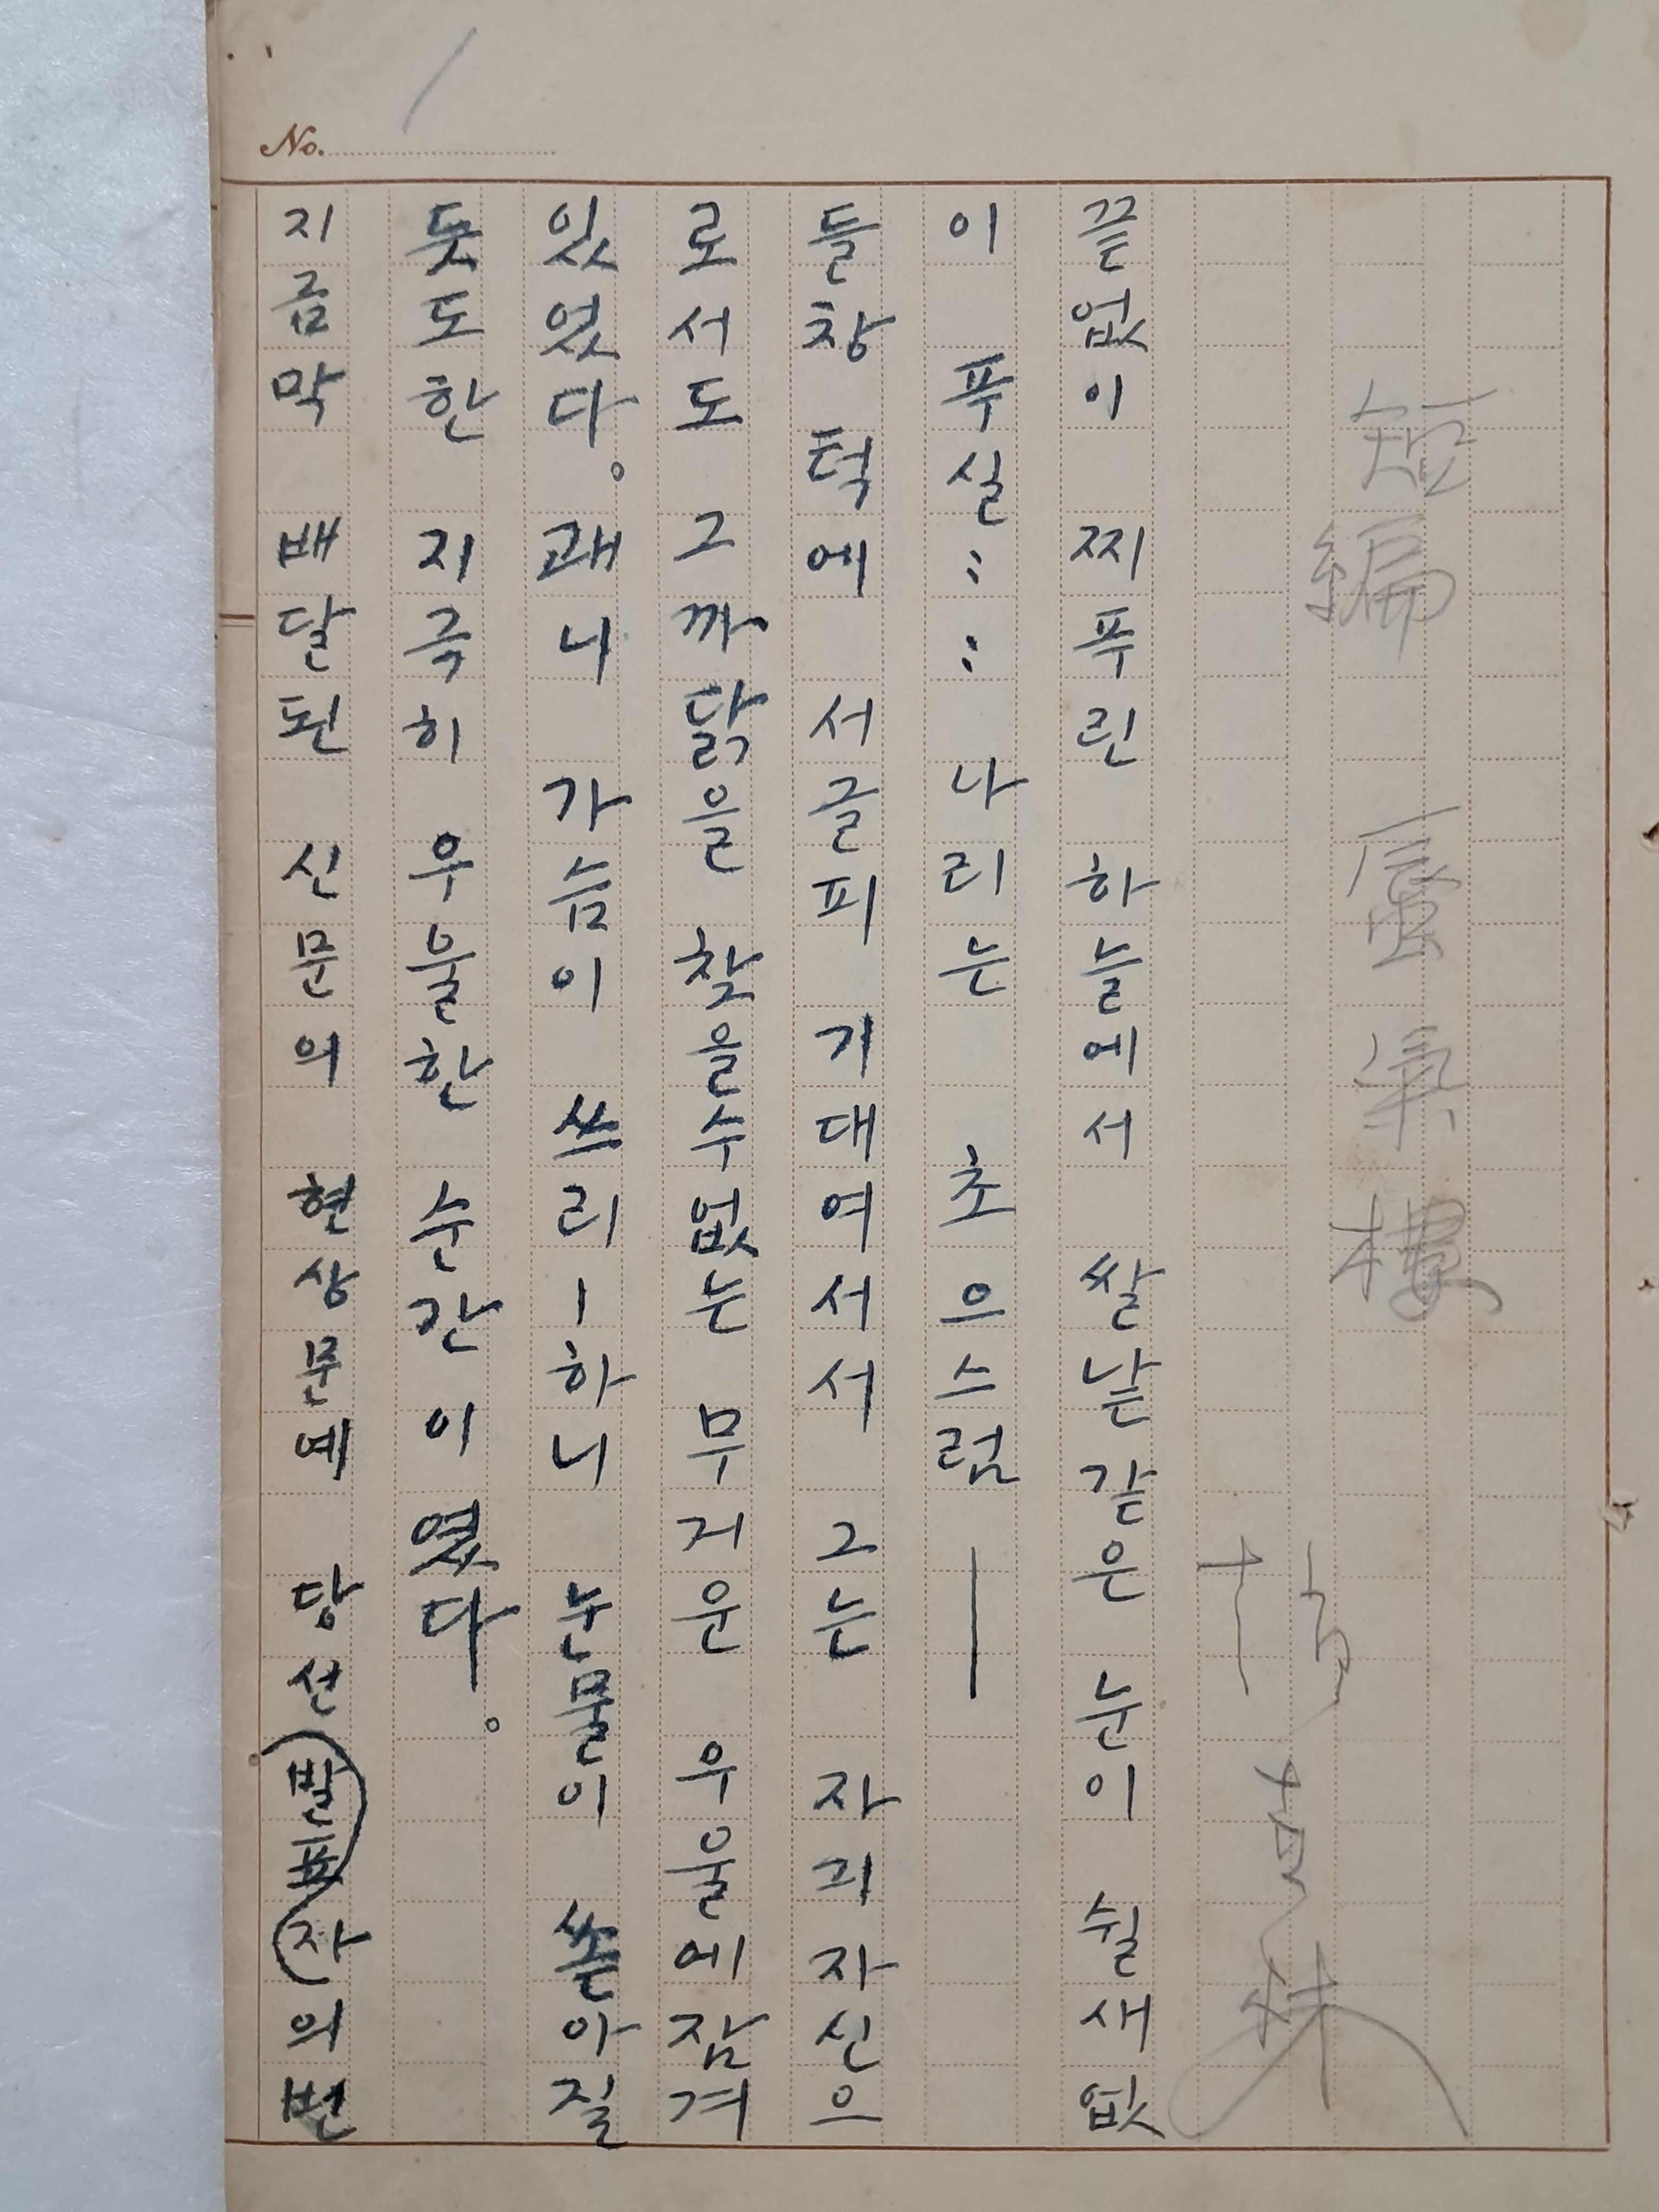 No. 1
短編 蜃氣樓
끝없이 찌푸린 하늘에서 쌀낱같은 눈이 쉴새없
이 푸실‥‥ 나리는 초으스럼——
들창 턱에 서글피 기대여서서 그는 자긔자신으
로서도 그까닭을 찾을수없는 무거운 우울에잠겨
있었다。 괘니 가슴이 쓰리ㅣ하니 눈물이 쏟아질
듯도한 지극히 우울한 순간이였다。
지금막 배달된 신문의 현상문예 당선(발표자)의 번